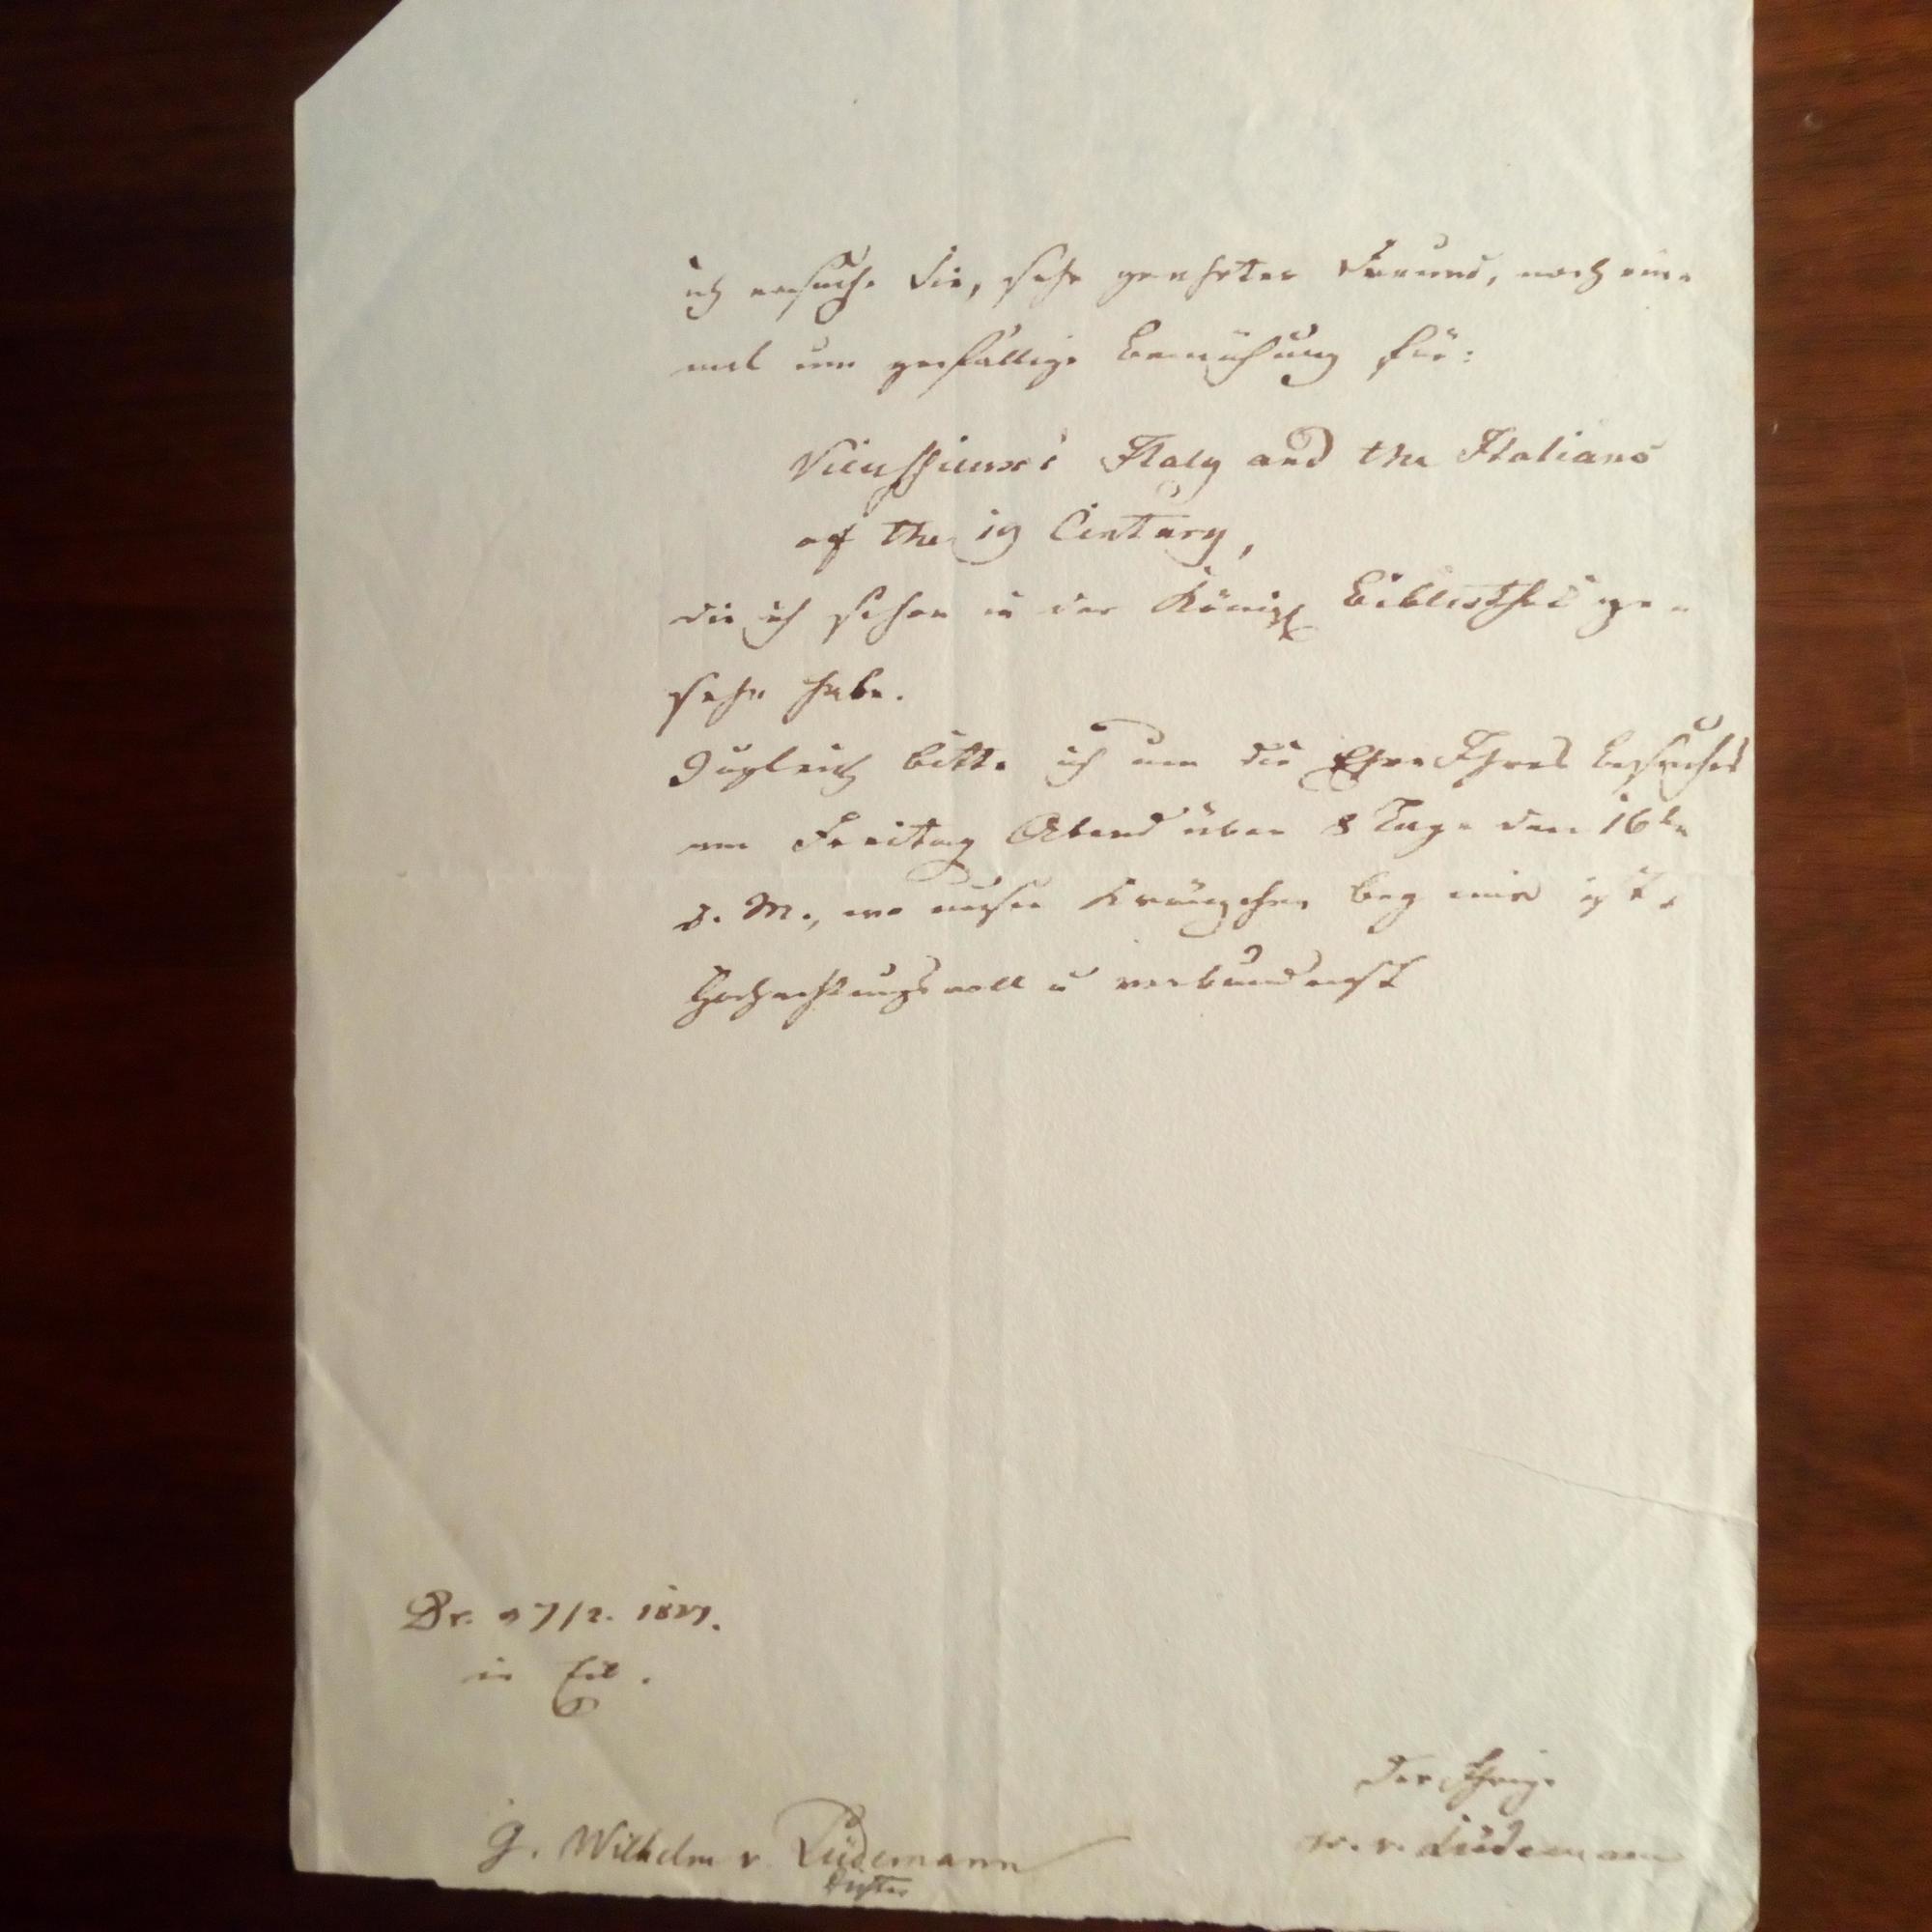 ich ersuche Sie, sehr geehrter Freund, noch ein-
mal um gefällige Bemühung für:
Vieusseux's Italy and the Italians
of the 19 Century,
die ich schon in der Königl Bibliothek ge-
sehn habe.
Zugleich bitte ich um die Ehre Ihres Besuches
am Freitag Abend über 8 Tage den 16ten
d. M., wo unser Kränzchen bey mir ist.
Hochachtungsvoll u verbundenst
Dr. 7/2. 1827.
in Eil.
Der Ihrige
W. v. Lüdemann
G. Wilhelm v. Lüdemann
Dichter